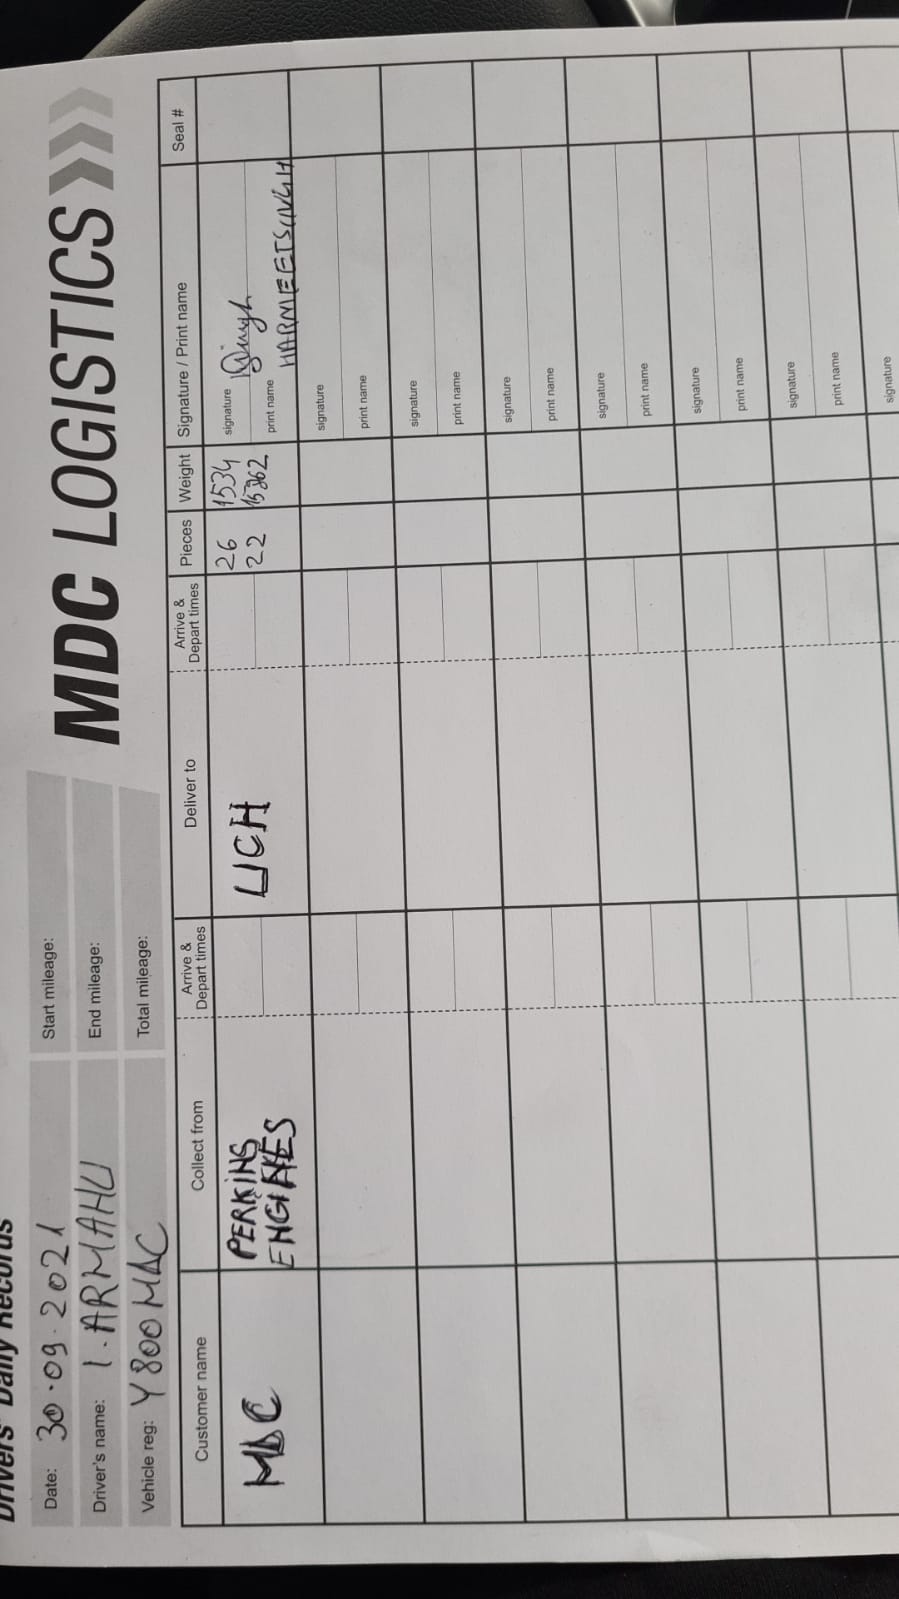 Drivers' Daily Records
MDC LOGISTICS
Date: 30.09.2021
Start mileage:
Driver's name: I. ARMAHU
End mileage:
Vehicle reg: Y800MAC
Total mileage:
Customer name Collect from Arrive & Depart times Deliver to Arrive & Depart times Pieces Weight Signature / Print name Seal #
MDC PERKINS ENGINES LICH 26 1534 signature
22 15262 print name HARMEETSINGH
signature
print name
signature
print name
signature
print name
signature
print name
signature
print name
signature
print name
signature